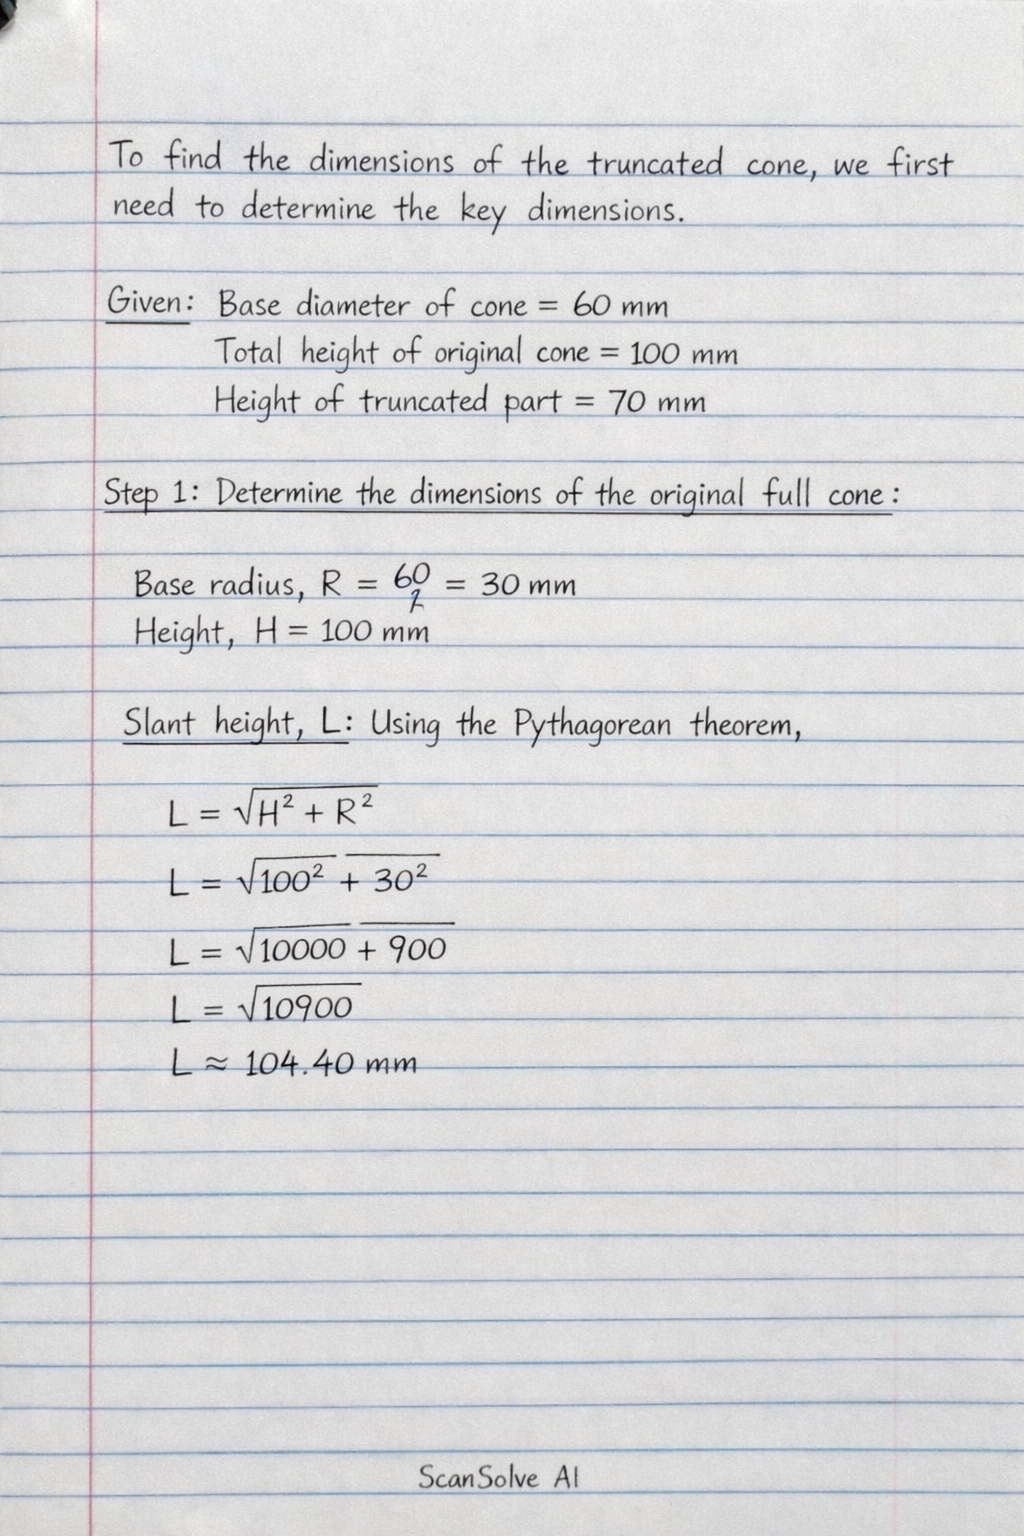 To find the dimensions of the truncated cone, we first
need to determine the key dimensions.
Given: Base diameter of cone = 60 mm
Total height of original cone = 100 mm
Height of truncated part = 70 mm
Step 1: Determine the dimensions of the original full cone:
Base radius, R = 60/2 = 30 mm
Height, H = 100 mm
Slant height, L: Using the Pythagorean theorem,
L = √H² + R²
L = √100² + 30²
L = √10000 + 900
L = √10900
L ≈ 104.40 mm
ScanSolve AI